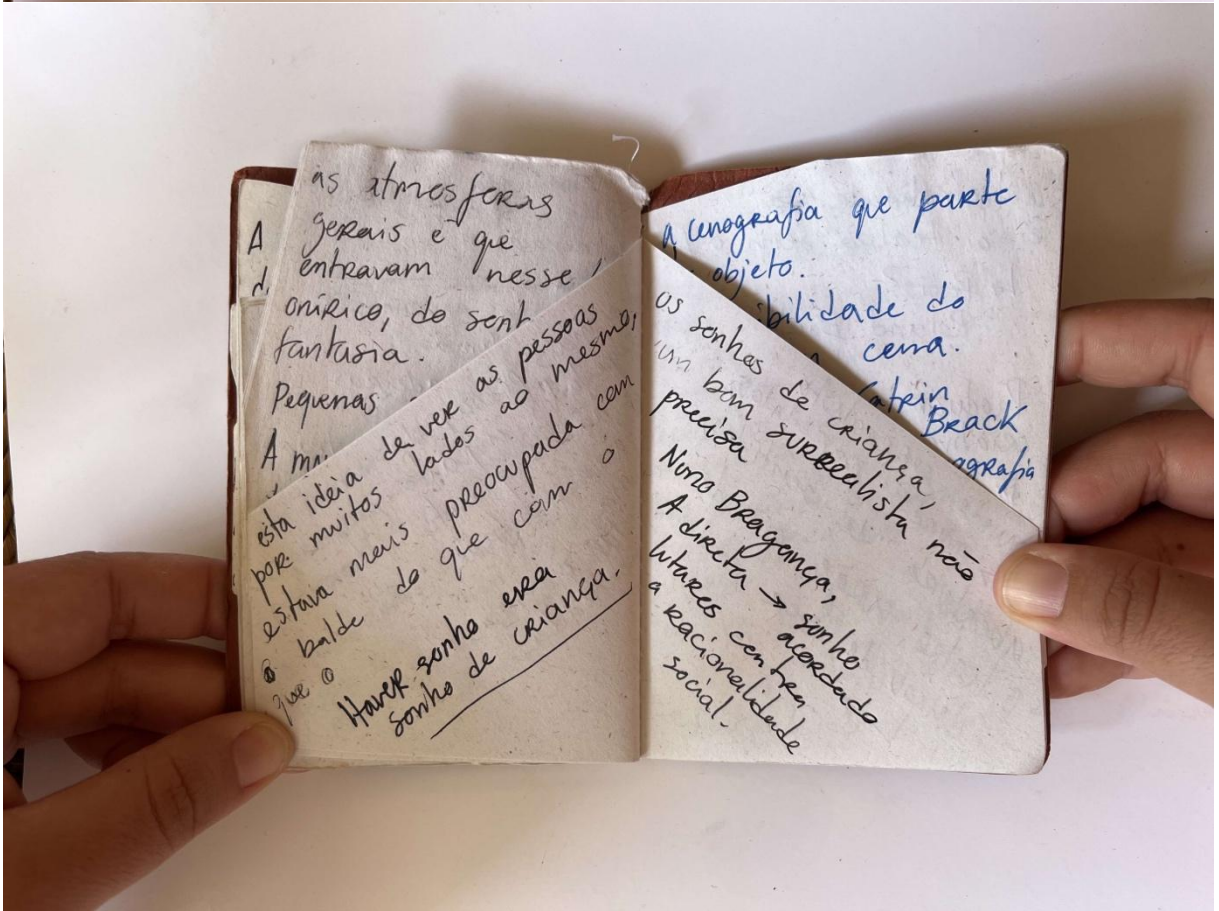 A
d
as atmosferas
gerais é que
entravam nesse
onírico, do sent
fantasia.
Pequenas
A mu
esta ideia de ver as pessoas
por muitos lados ao mesmo,
estava mais preocupada com
o balde do que com o
que o
Haver sonho era
sonho de criança.
a cenografia que parte
objeto.
ibilidade do
cena.
Catrin
Brack
ografia
os sonhos de criança,
um bom surrealista não
precisa
Nuno Bragança,
A directa → sonho
acordado
lutares contra
a racionalidade
social.